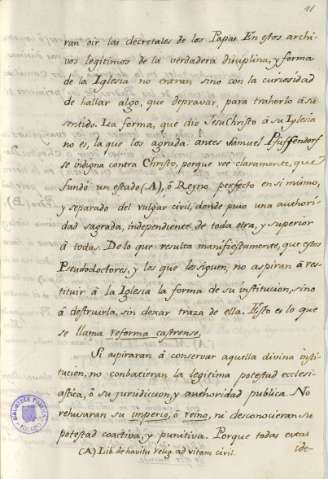 41
ran oir las decretales de los Papas. En estos archi-
vos legitimos de la verdadera disciplina, y forma
de la Iglesia no entran sino con la curiosidad
de hallar algo, que depravar, para traherlo à su
sentido. La forma, que dió Jesu Christo à su Iglesia
no es, la que los agrada: antes Samuel Puffendorf
se indigna contra Christo, porque ve claramente, que
fundó un estado (A), ò Reyno perfecto en si mismo,
y separado del vulgar civil, donde puso una authori-
dad sagrada, independiente de toda otra, y superior
à todas. De lo que resulta manifiestamente, que estos
Pseudodoctores, y los que los siguen, no aspiran à res-
tituir à la Iglesia la forma de su institucion, sino
à destruirla, sin dexar traza de ella. Esto es lo que
se llama reforma castrense.
Si aspiraran à conservar aquella divina insti-
tucion, no conbatieran la legitima potestad eclesi-
astica, ò su jurisdiccion, y authoridad publica. No
rehusaran su imperio, ò reino, ni desconocieran su
potestad coactiva, y punitiva. Porque todas estas
(A) Lib. de havitu relig. ad vitam civil.
ide-